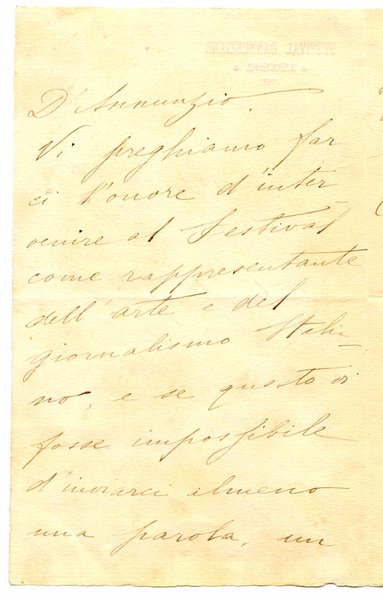 D'Annunzio.
Vi preghiamo far
ci l'onore d'inter
venire al Festival
come rappresentante
dell'arte e del
giornalismo Itali-
no, e se questo vi
fosse impossibile
d'inviarci almeno
una parola, un